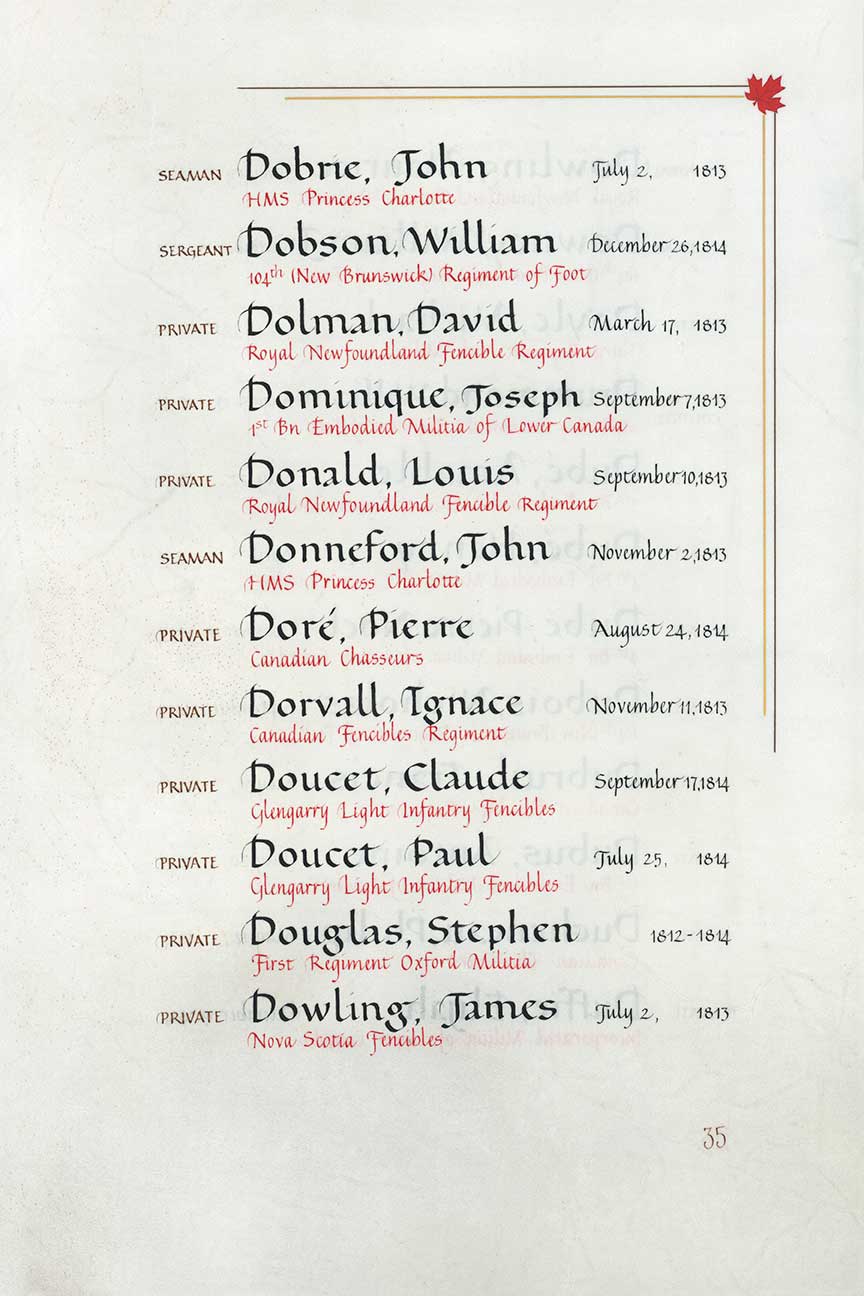 SEAMAN Dobrie, John July 2, 1813
HMS Princess Charlotte
SERGEANT Dobson, William December 26, 1814
104th (New Brunswick) Regiment of Foot
PRIVATE Dolman, David March 17, 1813
Royal Newfoundland Fencible Regiment
PRIVATE Dominique, Joseph September 7, 1813
1st Bn Embodied Militia of Lower Canada
PRIVATE Donald, Louis September 10, 1813
Royal Newfoundland Fencible Regiment
SEAMAN Donneford, John November 2, 1813
HMS Princess Charlotte
PRIVATE Doré, Pierre August 24, 1814
Canadian Chasseurs
PRIVATE Dorvall, Ignace November 11, 1813
Canadian Fencibles Regiment
PRIVATE Doucet, Claude September 17, 1814
Glengarry Light Infantry Fencibles
PRIVATE Doucet, Paul July 25, 1814
Glengarry Light Infantry Fencibles
PRIVATE Douglas, Stephen 1812-1814
First Regiment Oxford Militia
PRIVATE Dowling, James July 2, 1813
Nova Scotia Fencibles
35